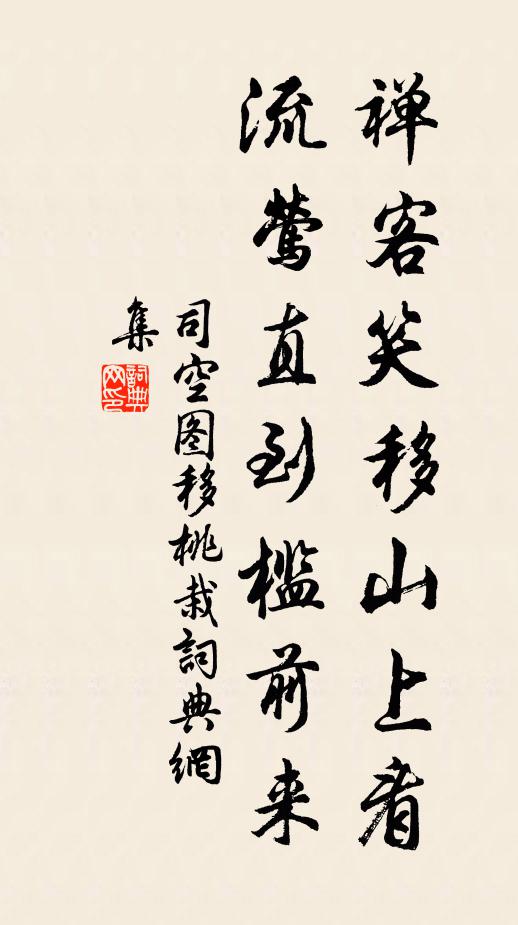 禅客笑移山上看
流莺直到槛前来
司空图移桃栽詞典網
集
詞典网印